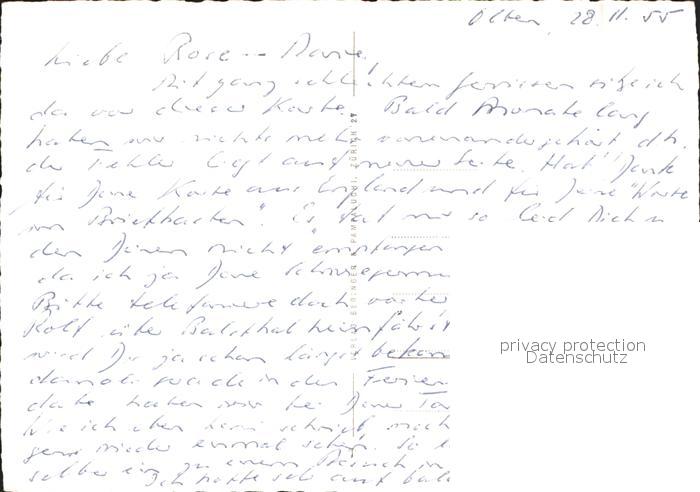 Olten, 28. 11. 55
Liebe Rose-Marie,
Mit ganz schlechtem Gewissen sitze ich
da vor dieser Karte. Bald Monate lang
haben wir nichts mehr voneinander gehört, d.h.
der Fehler liegt auf meiner Seite. Hab Dank
für Deine Karte aus England und für Deine "Karte
im Briefkasten". Es tat mir so leid Dich u
den Deinen nicht empfangen
da ich ja Deine Schwiegermu
Bitte telefoniere doch vorher
Rolf über Balsthal heimfährst
wird Dir ja schon längst bekan
damals gerade in den Ferien
haben wir bei Deiner
Wie ich eben
gerne wieder einmal sehen. So
selber ein zu einem Besuch in
Ich hoffe sehr auf bald
VERLAG BERINGER & PAMPALUCHI, ZÜRICH 27
privacy protection
Datenschutz